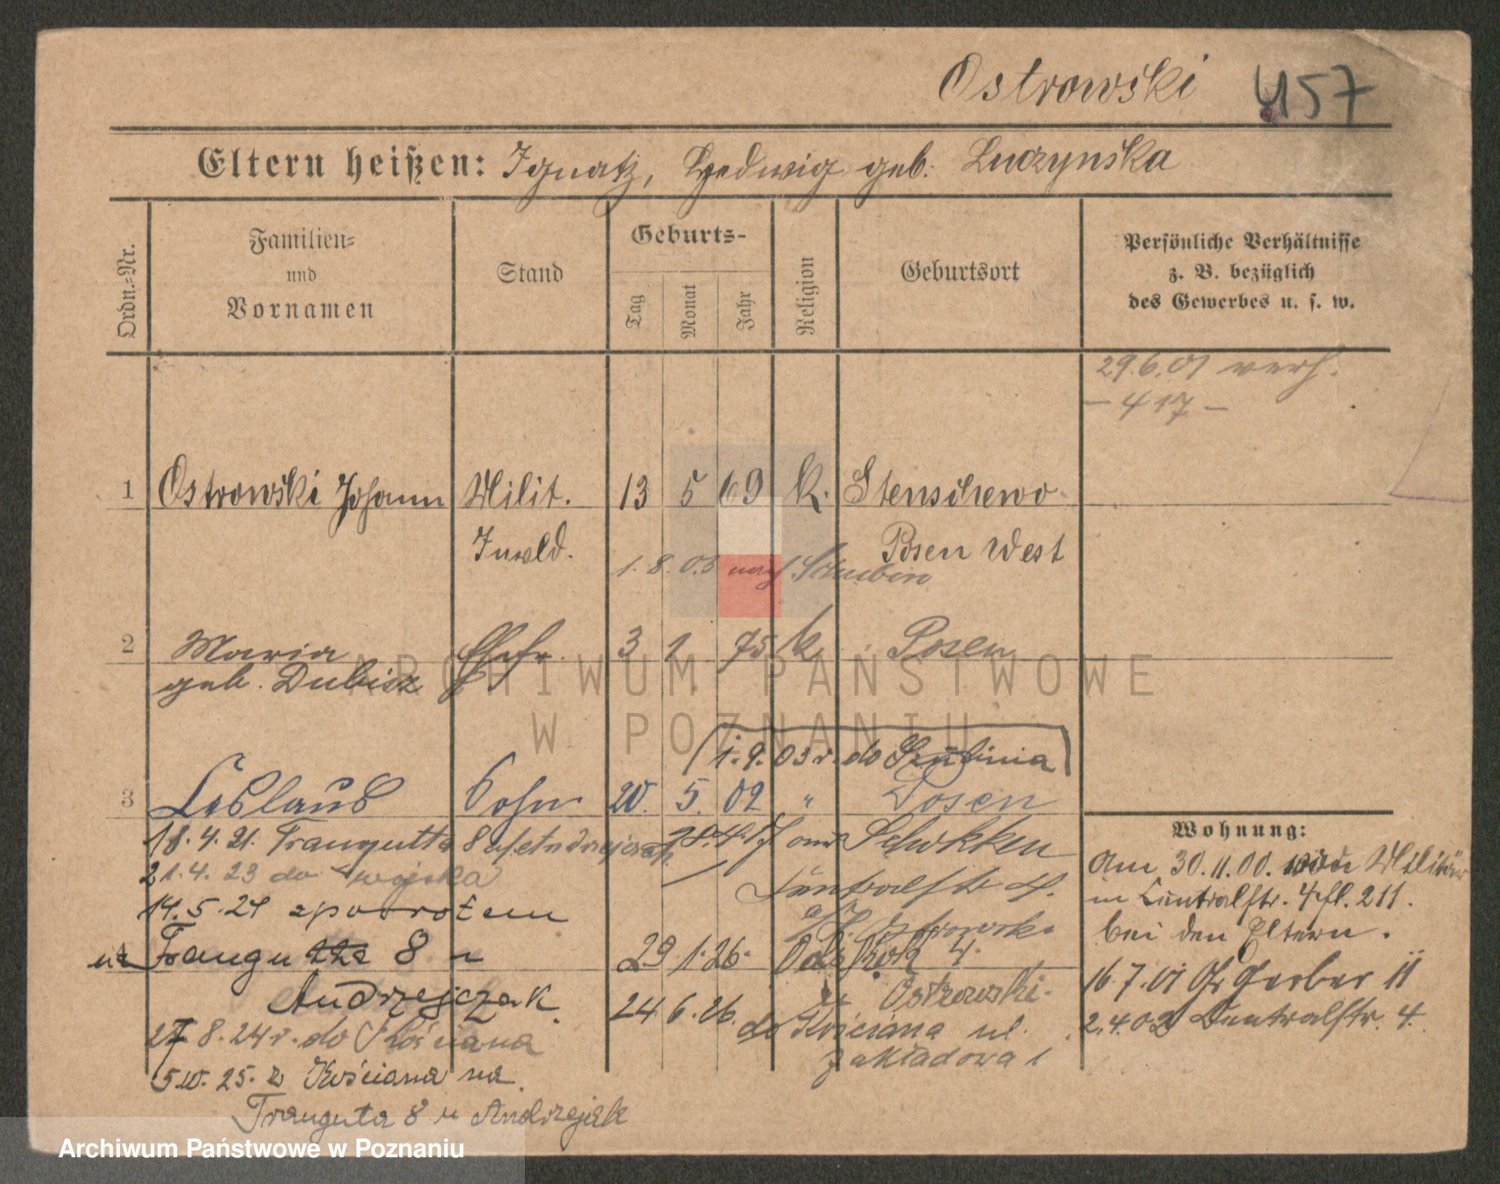 Ostrowski 457
Eltern heißen: Ignatz, Hedwig geb. Luczynska
Ordn.-Nr.
Familien-
und
Vornamen
Stand
Geburts-
Tag
Monat
Jahr
Religion
Geburtsort
Persönliche Verhältnisse
z. B. bezüglich
des Gewerbes u. s. w.
29.6.01 verh.
- 417 -
1 Ostrowski Johann Milit. 13 5 69 K. Stenschewo
Invld. Posen West
1.8.03 nach Schubin
2 Maria Ehefr. 3 2 75 k. Posen
geb. Dubisz
1.9.03 r. do Szubinia
3 Ceslaus Sohn 20. 5. 02 " Posen
18.4.21. Traugutta 8 28.4.17 aus Schokken
21.4.23 do wojska Zentralstr. 4.
14.5.24 z powrotem Ostrowski
Traugutta 8 u 29 1. 26. 4.
Andrzejczak Ostrowski
24 6. 26. do Kościana ul.
27 8. 24 r. do Kościana Zakładowa 1
5.10. 25. z Kościana na
Trauguta 8 u Andrzejak
Wohnung:
Am 30.11.00. von Militär
in Zentralstr. 4 II. 211.
bei den Eltern.
16.7.01 Gr Gerber 11
2.4.02 Zentralstr. 4.
ARCHIWUM PAŃSTWOWE
W POZNANIU
Archiwum Państwowe w Poznaniu